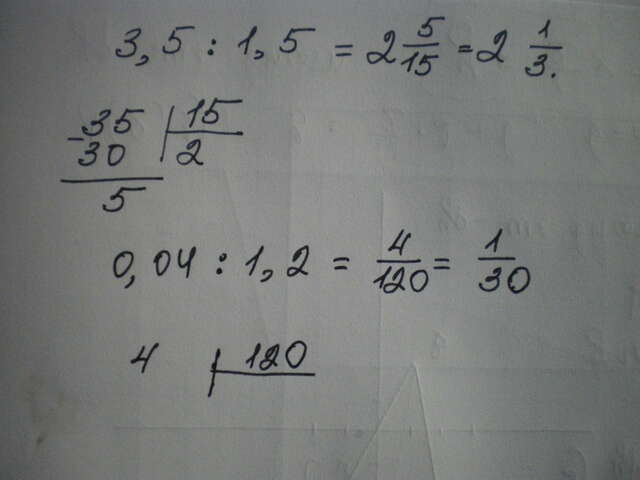 3,5 : 1,5 = 2 5/15 = 2 1/3.
-35 | 15
30 | 2
5
0,04 : 1,2 = 4/120 = 1/30
4 | 120